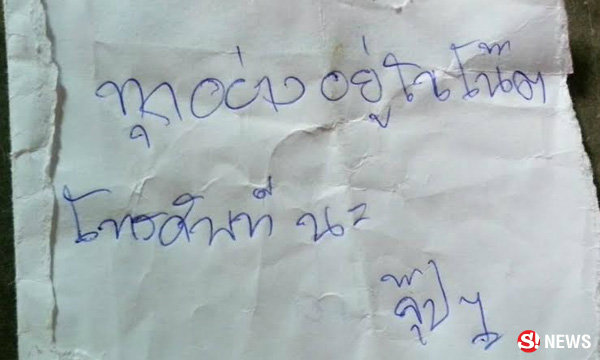 ทุกอย่างอยู่ในโน๊ต
โทรศัพท์ นะ
จุ๊ปๆ
S! NEWS